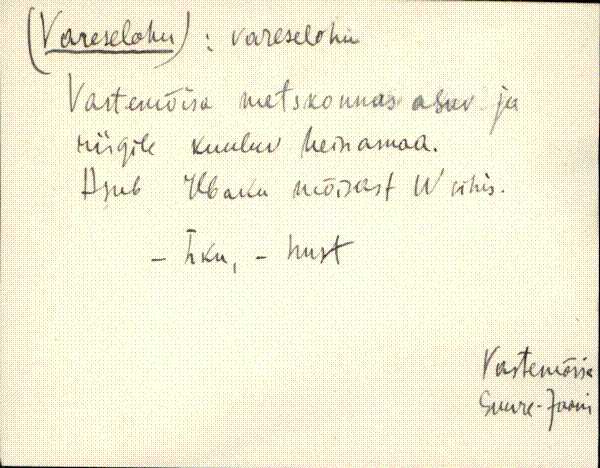 (Vareselohu) : vareselohu
Vastemõisa metskonnas asuv ja
riigile kuuluv heinamaa.
Asub mõisast W
- hust
Vastemõisa
Suure-Jaani